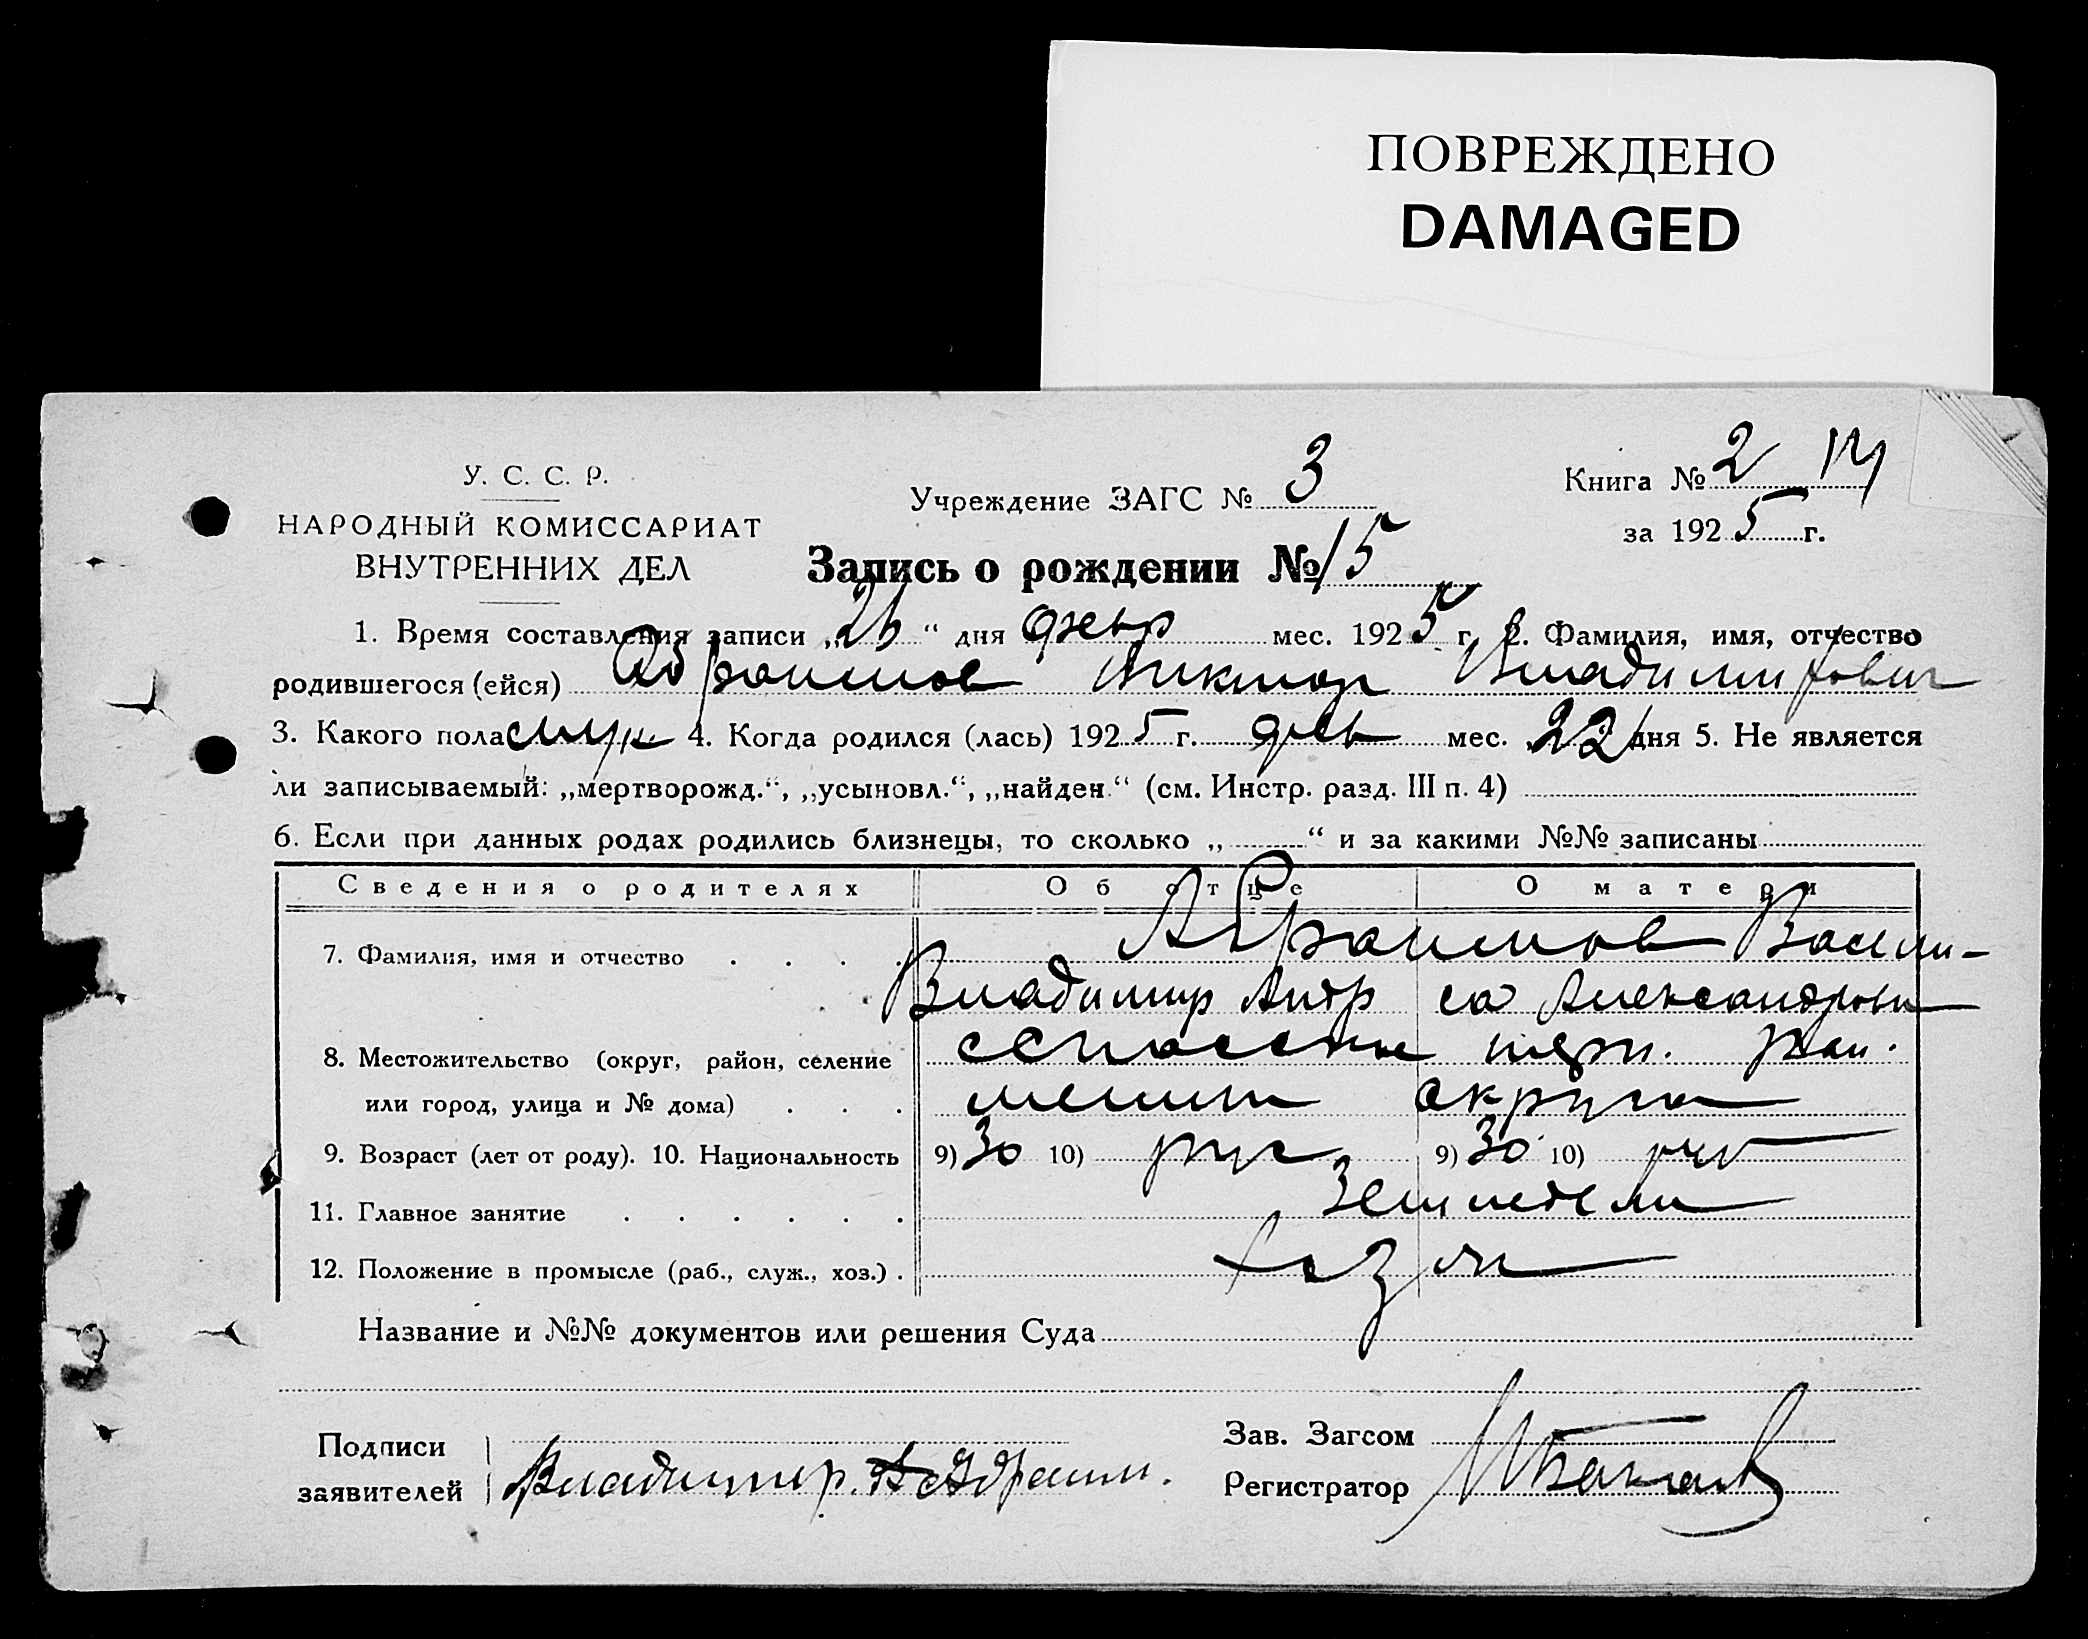 ПОВРЕЖДЕНО
DAMAGED
У. С. С. Р.
НАРОДНЫЙ КОМИССАРИАТ
ВНУТРЕННИХ ДЕЛ
Учреждение ЗАГС № 3
Книга № 2
за 1925 г.
Запись о рождении № 15
1. Время составления записи „26“ дня февр мес. 1925 г. 2. Фамилия, имя, отчество
родившегося (ейся) Абраимов Виктор Владимирович
3. Какого пола муж. 4. Когда родился (лась) 1925 г. фев мес. 22 дня 5. Не является
ли записываемый: „мертворожд.“, „усыновл.“, „найден.“ (см. Инстр. разд. III п. 4)
6. Если при данных родах родились близнецы, то сколько „ “ и за какими №№ записаны
Сведения о родителях Об отце О матери
7. Фамилия, имя и отчество Абраимов Васили-
Владимир Андр са Александровн
8. Местожительство (округ, район, селение рай.
или город, улица и № дома) мелит округа
9. Возраст (лет от роду). 10. Национальность 9) 30 10) рус 9) 30 10) рус
11. Главное занятие Земледели
12. Положение в промысле (раб., служ., хоз.) хозяи
Название и №№ документов или решения Суда
Подписи
заявителей Владимир.
Зав. Загсом
Регистратор